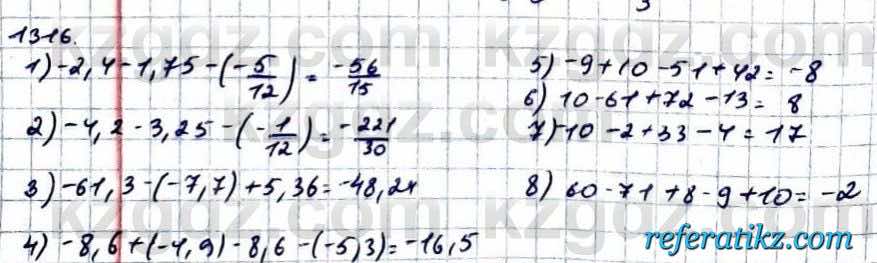 1316.
1) -2,4 - 1,75 - (-5/12) = -56/15
2) -4,2 - 3,25 - (-1/12) = -221/30
3) -61,3 - (-7,7) + 5,36 = -48,24
4) -8,6 + (-4,9) - 8,6 - (-5,3) = -16,5
5) -9 + 10 - 51 + 42 = -8
6) 10 - 61 + 72 - 13 = 8
7) -10 - 2 + 33 - 4 = 17
8) 60 - 71 + 8 - 9 + 10 = -2
referatikz.com